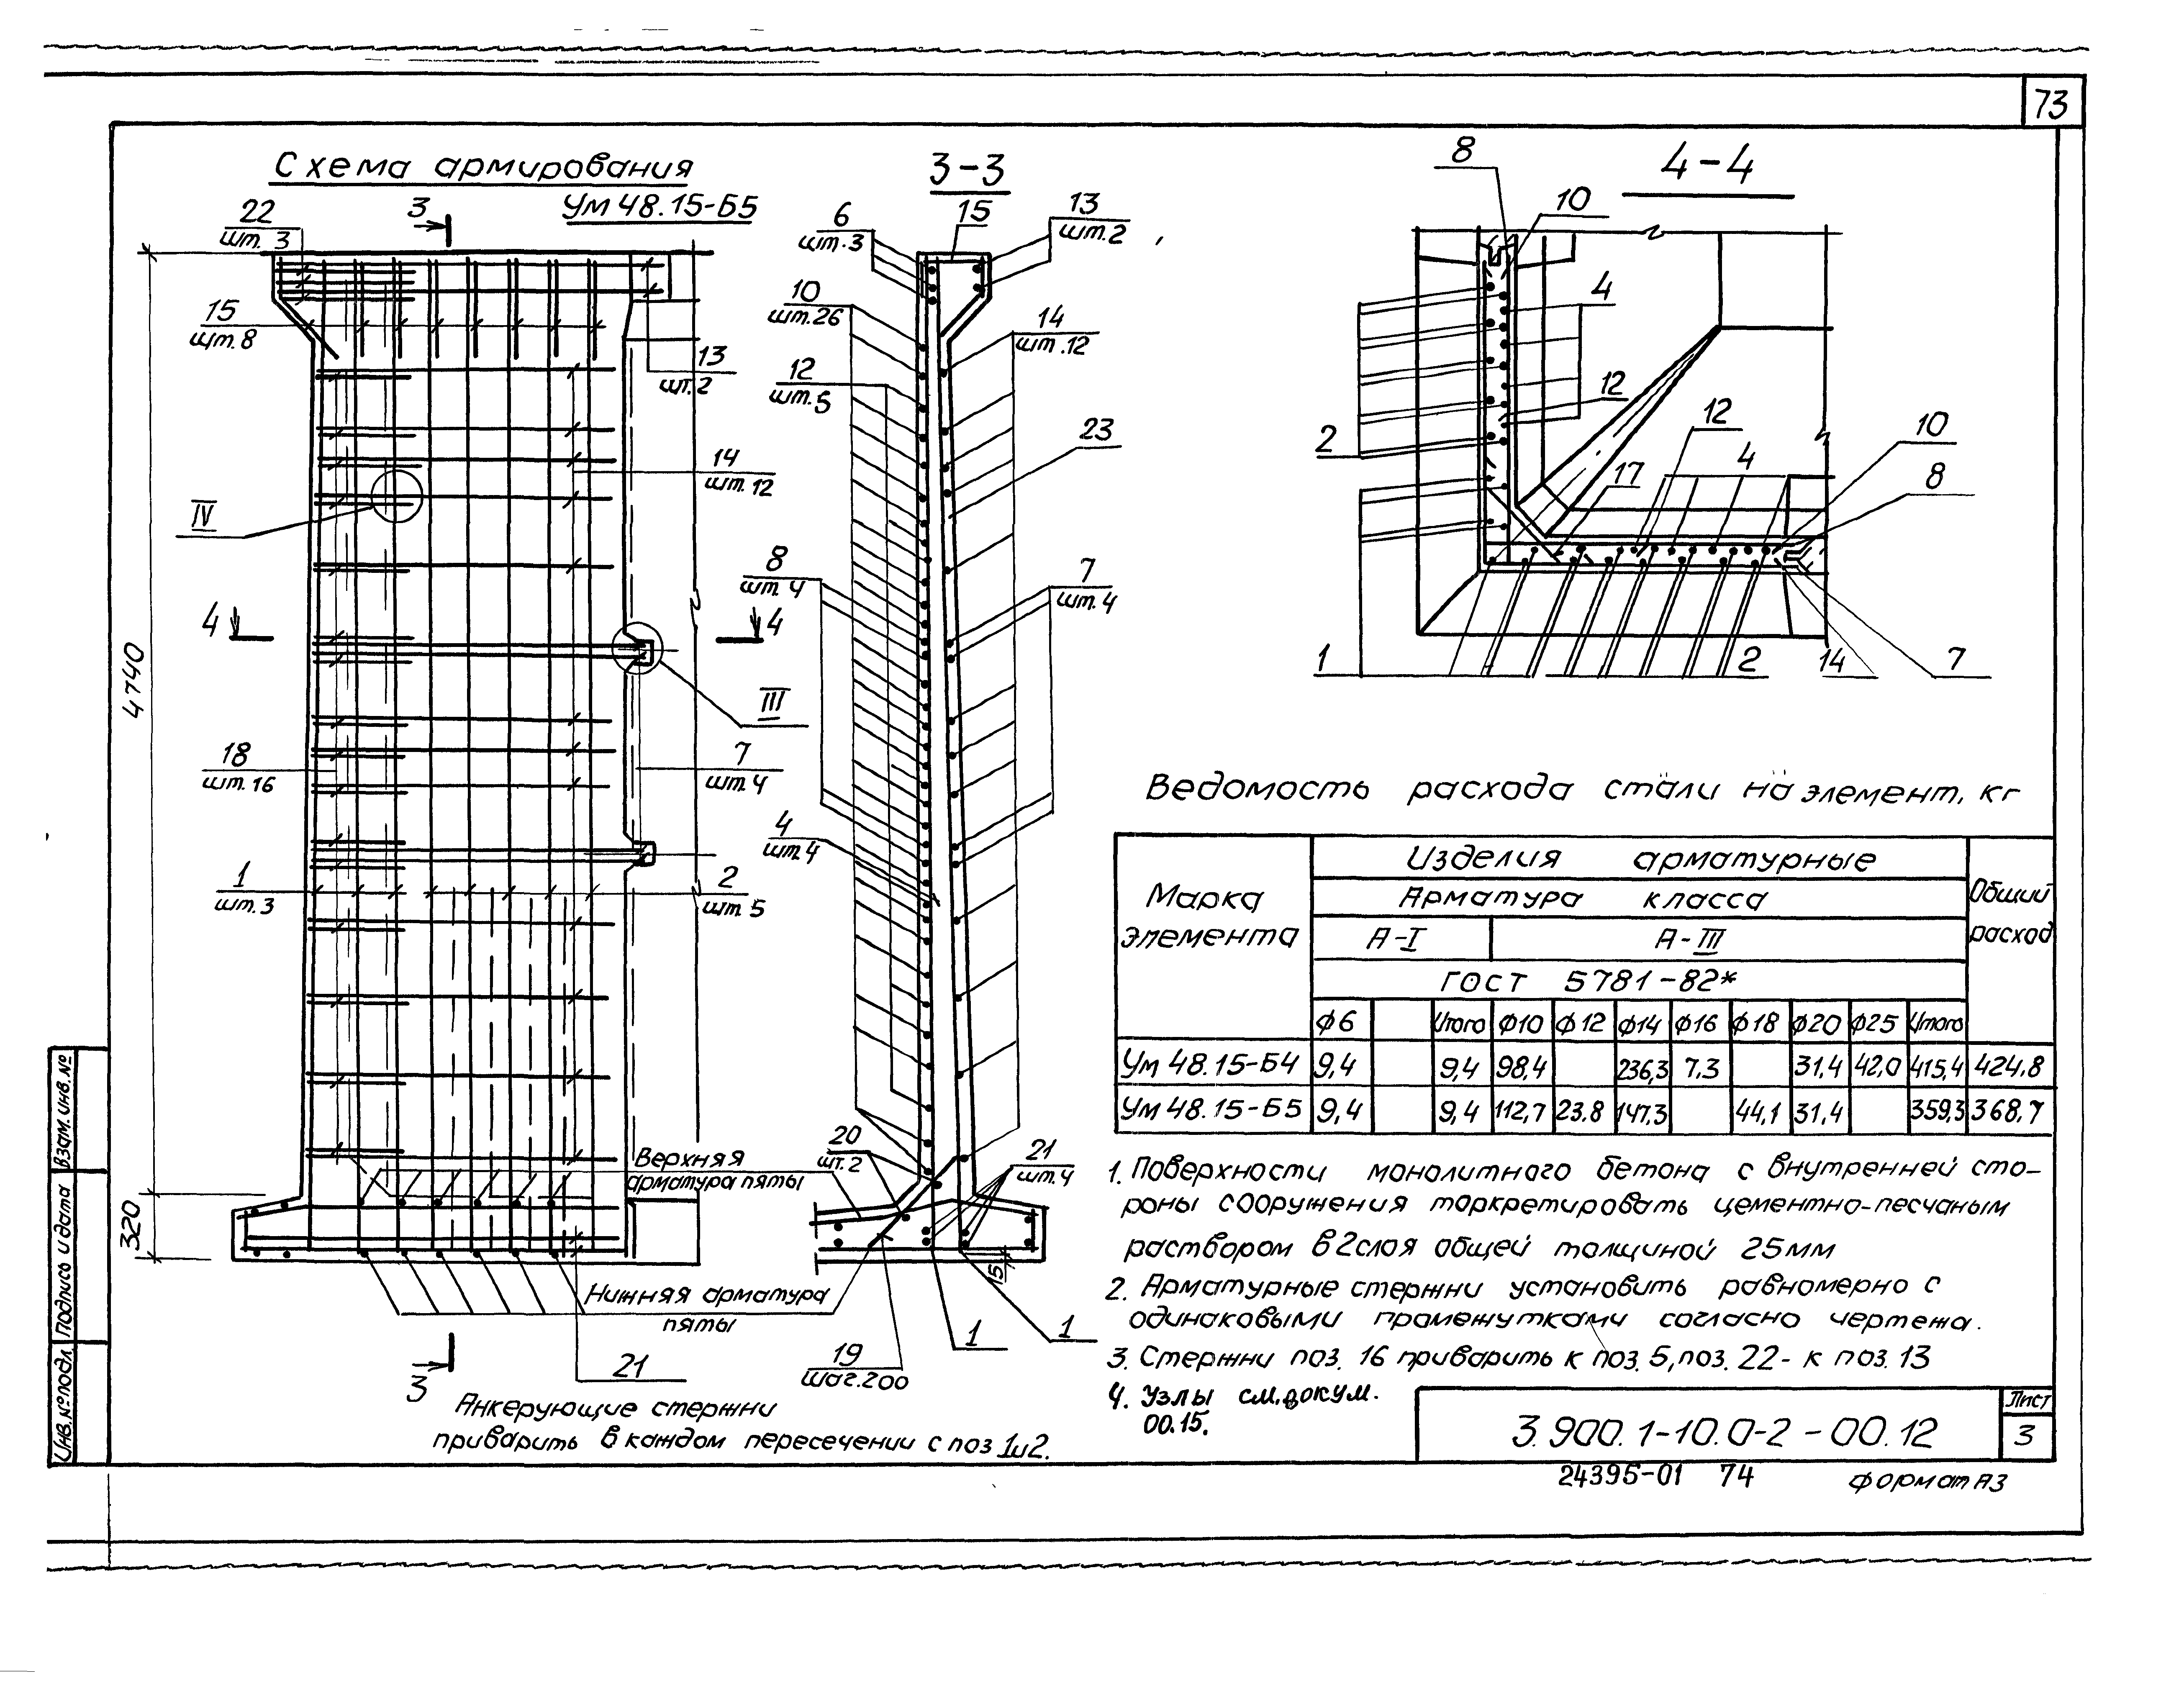 73
Схема армирования
Ум 48.15-Б5
3
22
шт. 3
15
шт. 8
13
шт. 2
14
шт. 12
IV
4
4
III
4740
18
шт. 16
7
шт. 4
1
шт. 3
2
шт 5
Верхняя
арматура пяты
320
Нижняя арматура
пяты
3
21
Анкерующие стержни
приварить в каждом пересечении с поз 1и2.
3-3
6
шт. 3
15
13
шт. 2
10
шт. 26
14
шт. 12
12
шт. 5
23
8
шт. 4
7
шт. 4
4
шт. 4
20
шт. 2
21
шт. 4
15
1
1
19
шаг. 200
4-4
8
10
4
12
2
17
12
4
10
8
1
2
14
7
Ведомость расхода стали на элемент, кг
Марка элемента
Изделия арматурные
Общий расход
Арматура класса
А-I А-III
ГОСТ 5781-82*
ф6 Итого ф10 ф12 ф14 ф16 ф18 ф20 ф25 Итого
Ум 48.15-Б4 9,4 9,4 98,4 236,3 7.3 31.4 42,0 415,4 424.8
Ум 48.15-Б5 9,4 9,4 112,7 23.8 147,3 44,1 31,4 359,3 368,7
1. Поверхности монолитного бетона с внутренней сто-
роны сооружения торкретировать цементно-песчаным
раствором в 2 слоя общей толщиной 25мм
2. Арматурные стержни установить равномерно с
одинаковыми промежутками согласно чертежа.
3. Стержни поз. 16 приварить к поз. 5, поз. 22- к поз. 13
4. Узлы см. докум.
00.15.
3.900.1-10.0-2-00.12
Лист
3
24395-01 74
формат А3
Взам. инв. №
Подпись и дата
Инв. № подл.